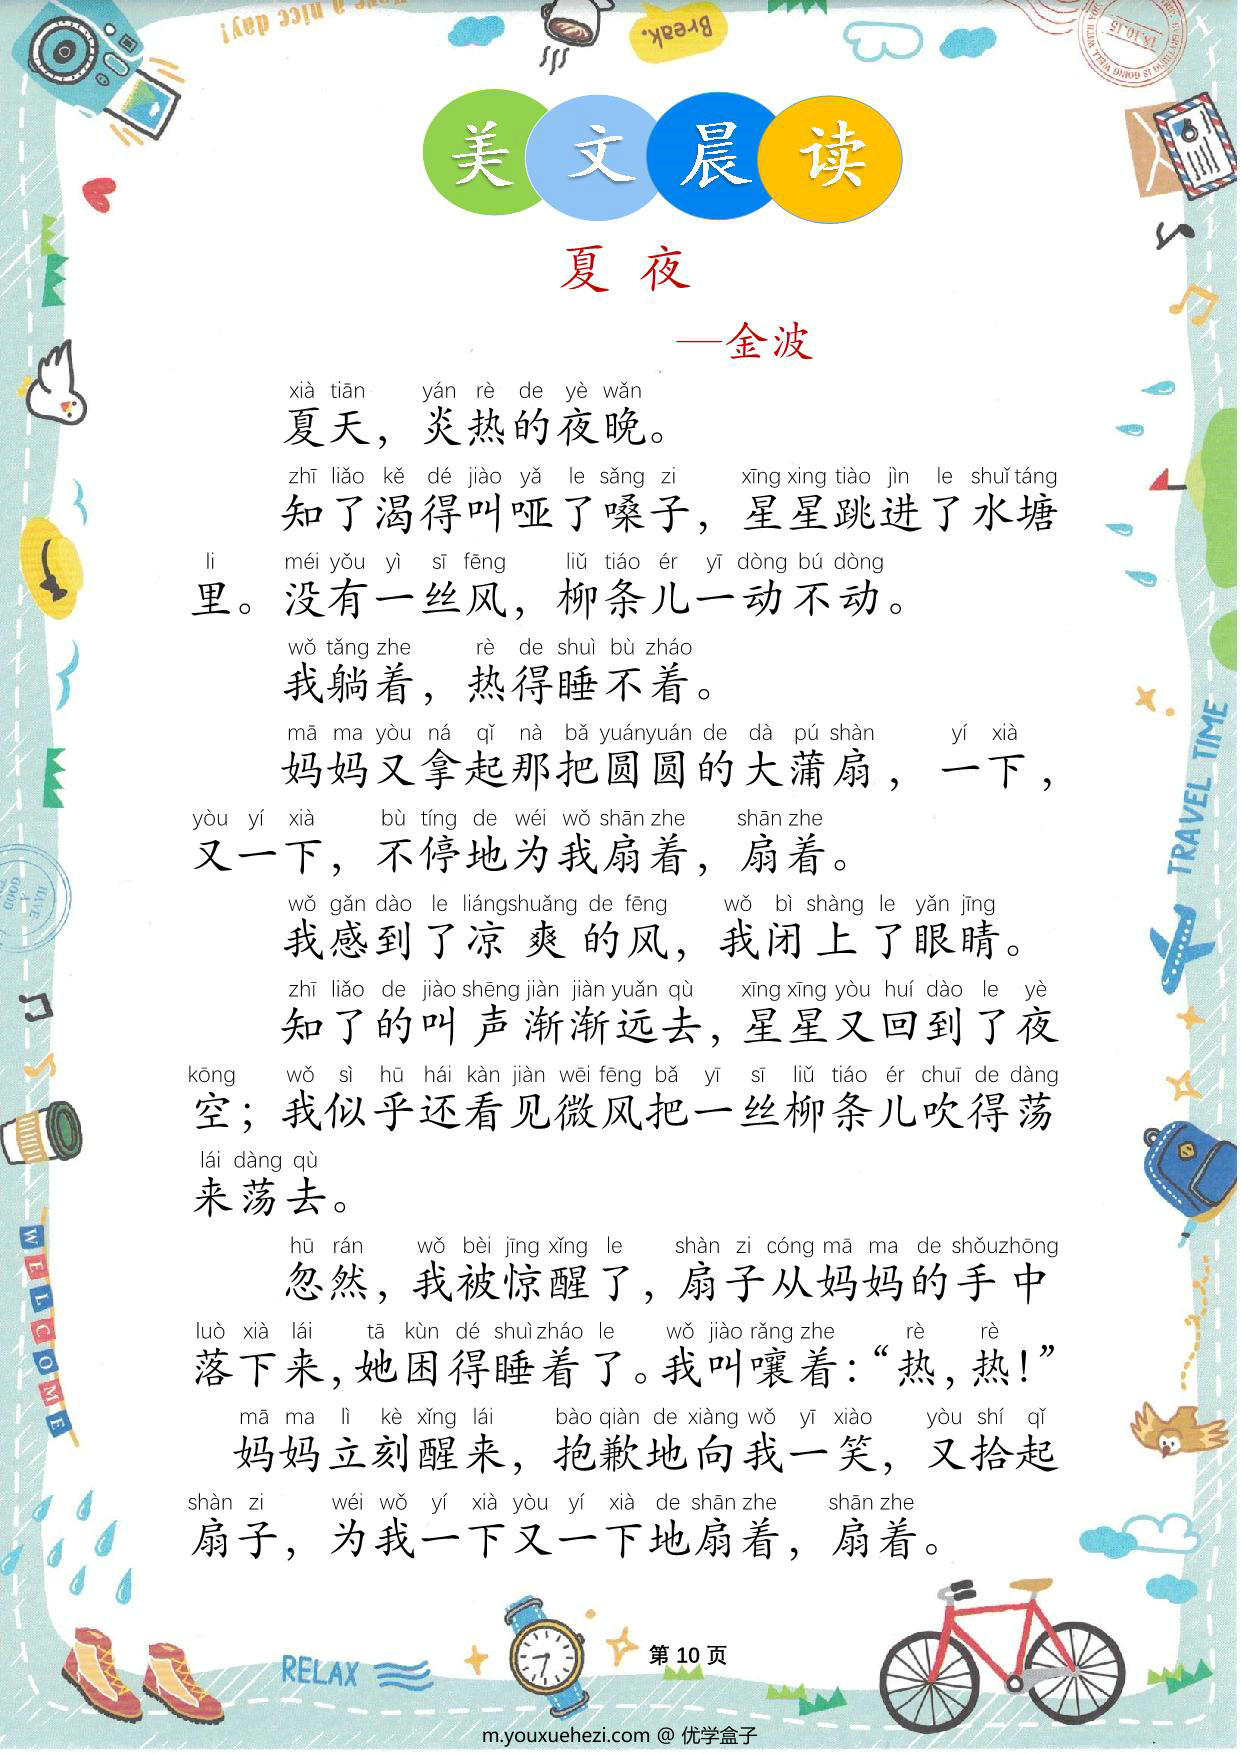 Have a nice day!
Break.
18.10.15
EVERYTHING IS GOING WELL
美文晨读
夏 夜
—金波
xià tiān yán rè de yè wǎn
夏天，炎热的夜晚。
zhī liǎo kě dé jiào yǎ le sǎng zi xīng xing tiào jìn le shuǐ táng
知了渴得叫哑了嗓子，星星跳进了水塘
li méi yǒu yì sī fēng liǔ tiáo ér yī dòng bú dòng
里。没有一丝风，柳条儿一动不动。
wǒ tǎng zhe rè de shuì bù zháo
我躺着，热得睡不着。
mā ma yòu ná qǐ nà bǎ yuányuán de dà pú shàn yí xià
妈妈又拿起那把圆圆的大蒲扇，一下，
yòu yí xià bù tíng de wéi wǒ shān zhe shān zhe
又一下，不停地为我扇着，扇着。
wǒ gǎn dào le liángshuǎng de fēng wǒ bì shàng le yǎn jīng
我感到了凉爽的风，我闭上了眼睛。
zhī liǎo de jiào shēng jiàn jiàn yuǎn qù xīng xīng yòu huí dào le yè
知了的叫声渐渐远去，星星又回到了夜
kōng wǒ sì hū hái kàn jiàn wēi fēng bǎ yī sī liǔ tiáo ér chuī de dàng
空；我似乎还看见微风把一丝柳条儿吹得荡
lái dàng qù
来荡去。
hū rán wǒ bèi jīng xǐng le shàn zi cóng mā ma de shǒuzhōng
忽然，我被惊醒了，扇子从妈妈的手中
luò xià lái tā kùn dé shuì zháo le wǒ jiào rǎng zhe rè rè
落下来，她困得睡着了。我叫嚷着：“热，热！”
mā ma lì kè xǐng lái bào qiàn de xiàng wǒ yī xiào yòu shí qǐ
妈妈立刻醒来，抱歉地向我一笑，又拾起
shàn zi wéi wǒ yí xià yòu yí xià de shān zhe shān zhe
扇子，为我一下又一下地扇着，扇着。
TRAVEL TIME
HAVE A GOOD
WELCOME
RELAX
第 10 页
m.youxuehezi.com @ 优学盒子